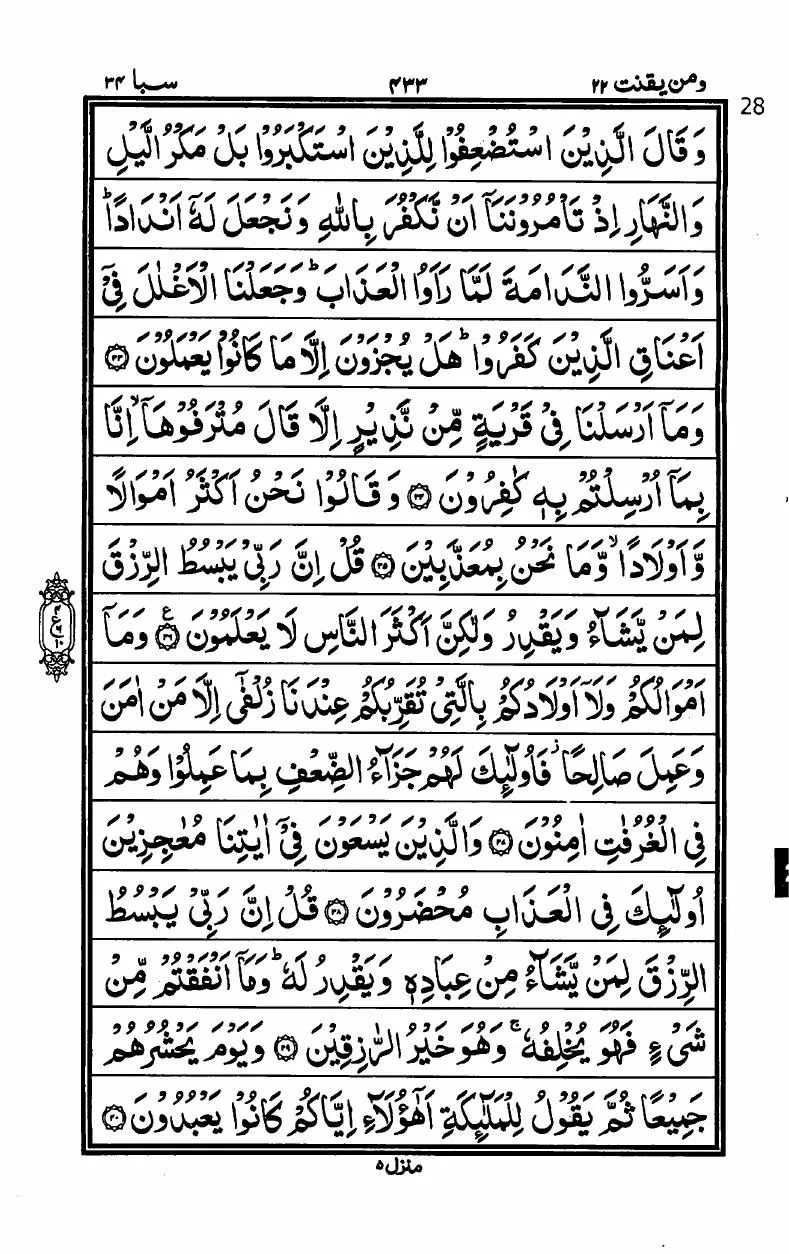 سبا ۳۴
۴۳۳
ومن یقنت ۲۲
28
وَقَالَ الَّذِیْنَ اسْتُضْعِفُوْا لِلَّذِیْنَ اسْتَكْبَرُوْا بَلْ مَكْرُ الَّیْلِ
وَالنَّهَارِ اِذْ تَاْمُرُوْنَنَاۤ اَنْ نَّكْفُرَ بِاللّٰهِ وَنَجْعَلَ لَهٗۤ اَنْدَادًاؕ
وَاَسَرُّوا النَّدَامَةَ لَمَّا رَاَوُا الْعَذَابَؕ وَجَعَلْنَا الْاَغْلٰلَ فِیْۤ
اَعْنَاقِ الَّذِیْنَ كَفَرُوْاؕ هَلْ یُجْزَوْنَ اِلَّا مَا كَانُوْا یَعْمَلُوْنَ ۝۳۳
وَمَاۤ اَرْسَلْنَا فِیْ قَرْیَةٍ مِّنْ نَّذِیْرٍ اِلَّا قَالَ مُتْرَفُوْهَاۤۙ اِنَّا
بِمَاۤ اُرْسِلْتُمْ بِهٖ كٰفِرُوْنَ ۝۳۴ وَقَالُوْا نَحْنُ اَكْثَرُ اَمْوَالًا
وَّاَوْلَادًاۙ وَّمَا نَحْنُ بِمُعَذَّبِیْنَ ۝۳۵ قُلْ اِنَّ رَبِّیْ یَبْسُطُ الرِّزْقَ
لِمَنْ یَّشَآءُ وَیَقْدِرُ وَلٰكِنَّ اَكْثَرَ النَّاسِ لَا یَعْلَمُوْنَ ۝۳۶ ع وَمَاۤ
اَمْوَالُكُمْ وَلَاۤ اَوْلَادُكُمْ بِالَّتِیْ تُقَرِّبُكُمْ عِنْدَنَا زُلْفٰۤی اِلَّا مَنْ اٰمَنَ
وَعَمِلَ صَالِحًا٘ فَاُولٰٓئِكَ لَهُمْ جَزَآءُ الضِّعْفِ بِمَا عَمِلُوْا وَهُمْ
فِی الْغُرُفٰتِ اٰمِنُوْنَ ۝۳۷ وَالَّذِیْنَ یَسْعَوْنَ فِیْۤ اٰیٰتِنَا مُعٰجِزِیْنَ
اُولٰٓئِكَ فِی الْعَذَابِ مُحْضَرُوْنَ ۝۳۸ قُلْ اِنَّ رَبِّیْ یَبْسُطُ
الرِّزْقَ لِمَنْ یَّشَآءُ مِنْ عِبَادِهٖ وَیَقْدِرُ لَهٗؕ وَمَاۤ اَنْفَقْتُمْ مِّنْ
شَیْءٍ فَهُوَ یُخْلِفُهٗۚ وَهُوَ خَیْرُ الرّٰزِقِیْنَ ۝۳۹ وَیَوْمَ یَحْشُرُهُمْ
جَمِیْعًا ثُمَّ یَقُوْلُ لِلْمَلٰٓئِكَةِ اَهٰۤؤُلَآءِ اِیَّاكُمْ كَانُوْا یَعْبُدُوْنَ ۝۴۰
منزل ۵